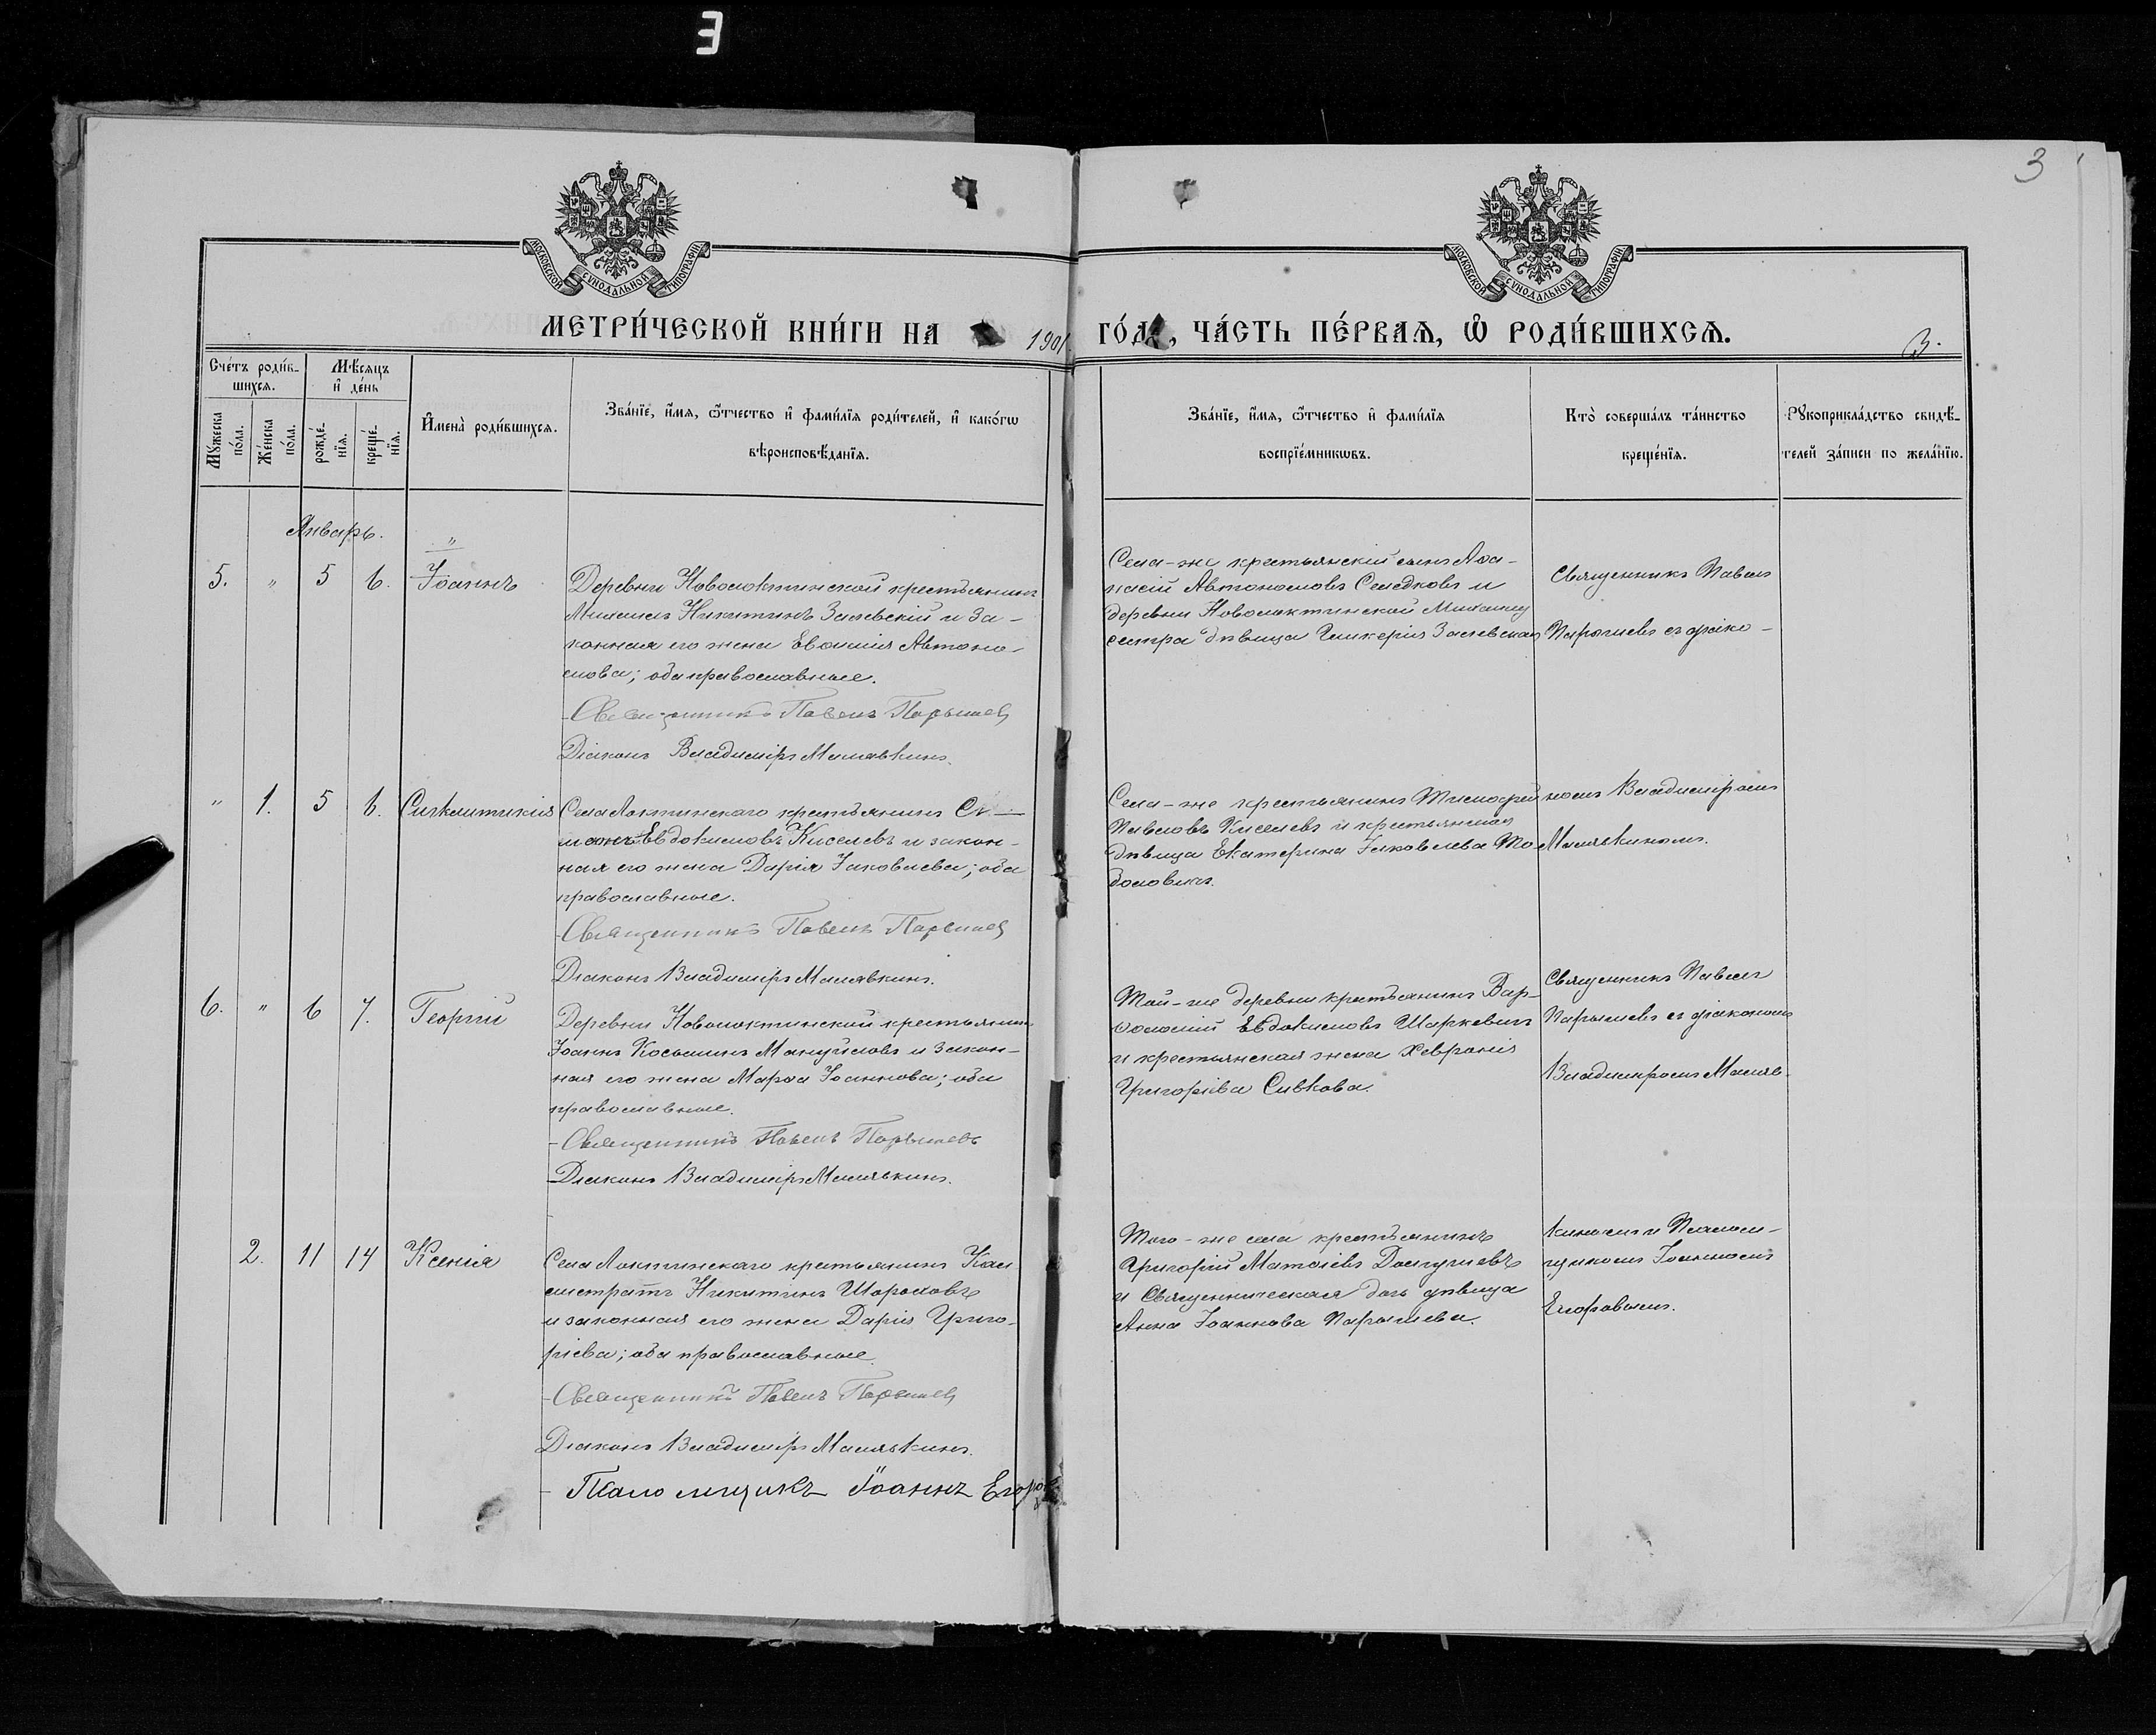 3
3
МОСКОВСКОЙ СѴНОДАЛЬНОЙ ТИПОГРАФІИ
МОСКОВСКОЙ СѴНОДАЛЬНОЙ ТИПОГРАФІИ
МЕТРИ́ЧЕСКОЙ КНИ́ГИ НА 1901. ГО́Д, ЧА́СТЬ ПЕ́РВАѦ, Ѽ РОДИ́ВШИХСѦ.
3.
Сче́тъ роди́в-
шихсѧ.
Мꙋ́жеска по́ла.
Же́нска по́ла.
Мѣ́сѧцъ
и҆ де́нь
рожде́-
нїѧ.
креще́-
нїѧ.
И҆мена̀ роди́вшихсѧ.
Зва́нїе, и҆́мѧ, ѻ҆́тчество и҆ фами́лїѧ роди́телей, и҆ како́гѡ
вѣроисповѣ́данїѧ.
Зва́нїе, и҆́мѧ, ѻ҆́тчество и҆ фами́лїѧ
воспрїе́мникѡвъ.
Кто̀ соверша́лъ та́инство
креще́нїѧ.
Рꙋкоприкла́дство свидѣ́-
телей за́писи по жела́нїю.
Январь.
5. " 5 6. Іоаннъ
Деревни Новолоктинской крестьянинъ
Михаилъ Никитинъ Заевскій и за-
конная его жена Евфимія Автоно-
мова; оба православные.
Священникъ Павелъ Парышевъ
Діаконъ Владиміръ Малявкинъ.
Села-же крестьянскій сынъ Афа-
насій Автономовъ Селедковъ и
деревни Новолоктинской Михаилу
сестра дѣвица Гликерія Заевская
Священникъ Павелъ
Парышевъ съ діако-
" 1. 5 6. Синклитикія
Села Локтинскаго крестьянинъ Си-
меонъ Евдокимовъ Киселевъ и закон-
ная его жена Дарія Іаковлева; оба
православные.
Священникъ Павелъ Парышевъ
Діаконъ Владиміръ Малявкинъ.
Села-же крестьянинъ Тимофей
Павловъ Киселевъ и крестьянская
дѣвица Екатерина Іаковлева То-
боловихъ.
номъ Владиміромъ
Малявкиномъ.
6. " 6 7. Георгій
Деревни Новолоктинской крестьянинъ
Іоаннъ Косьминъ Мануйловъ и закон-
ная его жена Марфа Іоаннова; оба
православные.
Священникъ Павелъ Парышевъ
Діаконъ Владиміръ Малявкинъ.
Той-же деревни крестьянинъ Вар-
фоломій Евдокимовъ Шаркевичъ
и крестьянская жена Хевронія
Григоріева Сивкова.
Священникъ Павелъ
Парышевъ съ діакономъ
Владиміромъ Маляв-
2. 11 14 Ксенія
Села Локтинскаго крестьянинъ Кал
листратъ Никитинъ Шороховъ
и законная его жена Дарія Григо-
ріева; оба православные.
Священникъ Павелъ Парышевъ
Діаконъ Владиміръ Малявкинъ.
Псаломщикъ Іоаннъ Егоровъ
Того-же села крестьянинъ
Григорій Матфіевъ Долгушевъ
и Священническая дочь дѣвица
Анна Іоаннова Парышева.
киномъ и Псалом-
щикомъ Іоанномъ
Егоровымъ.